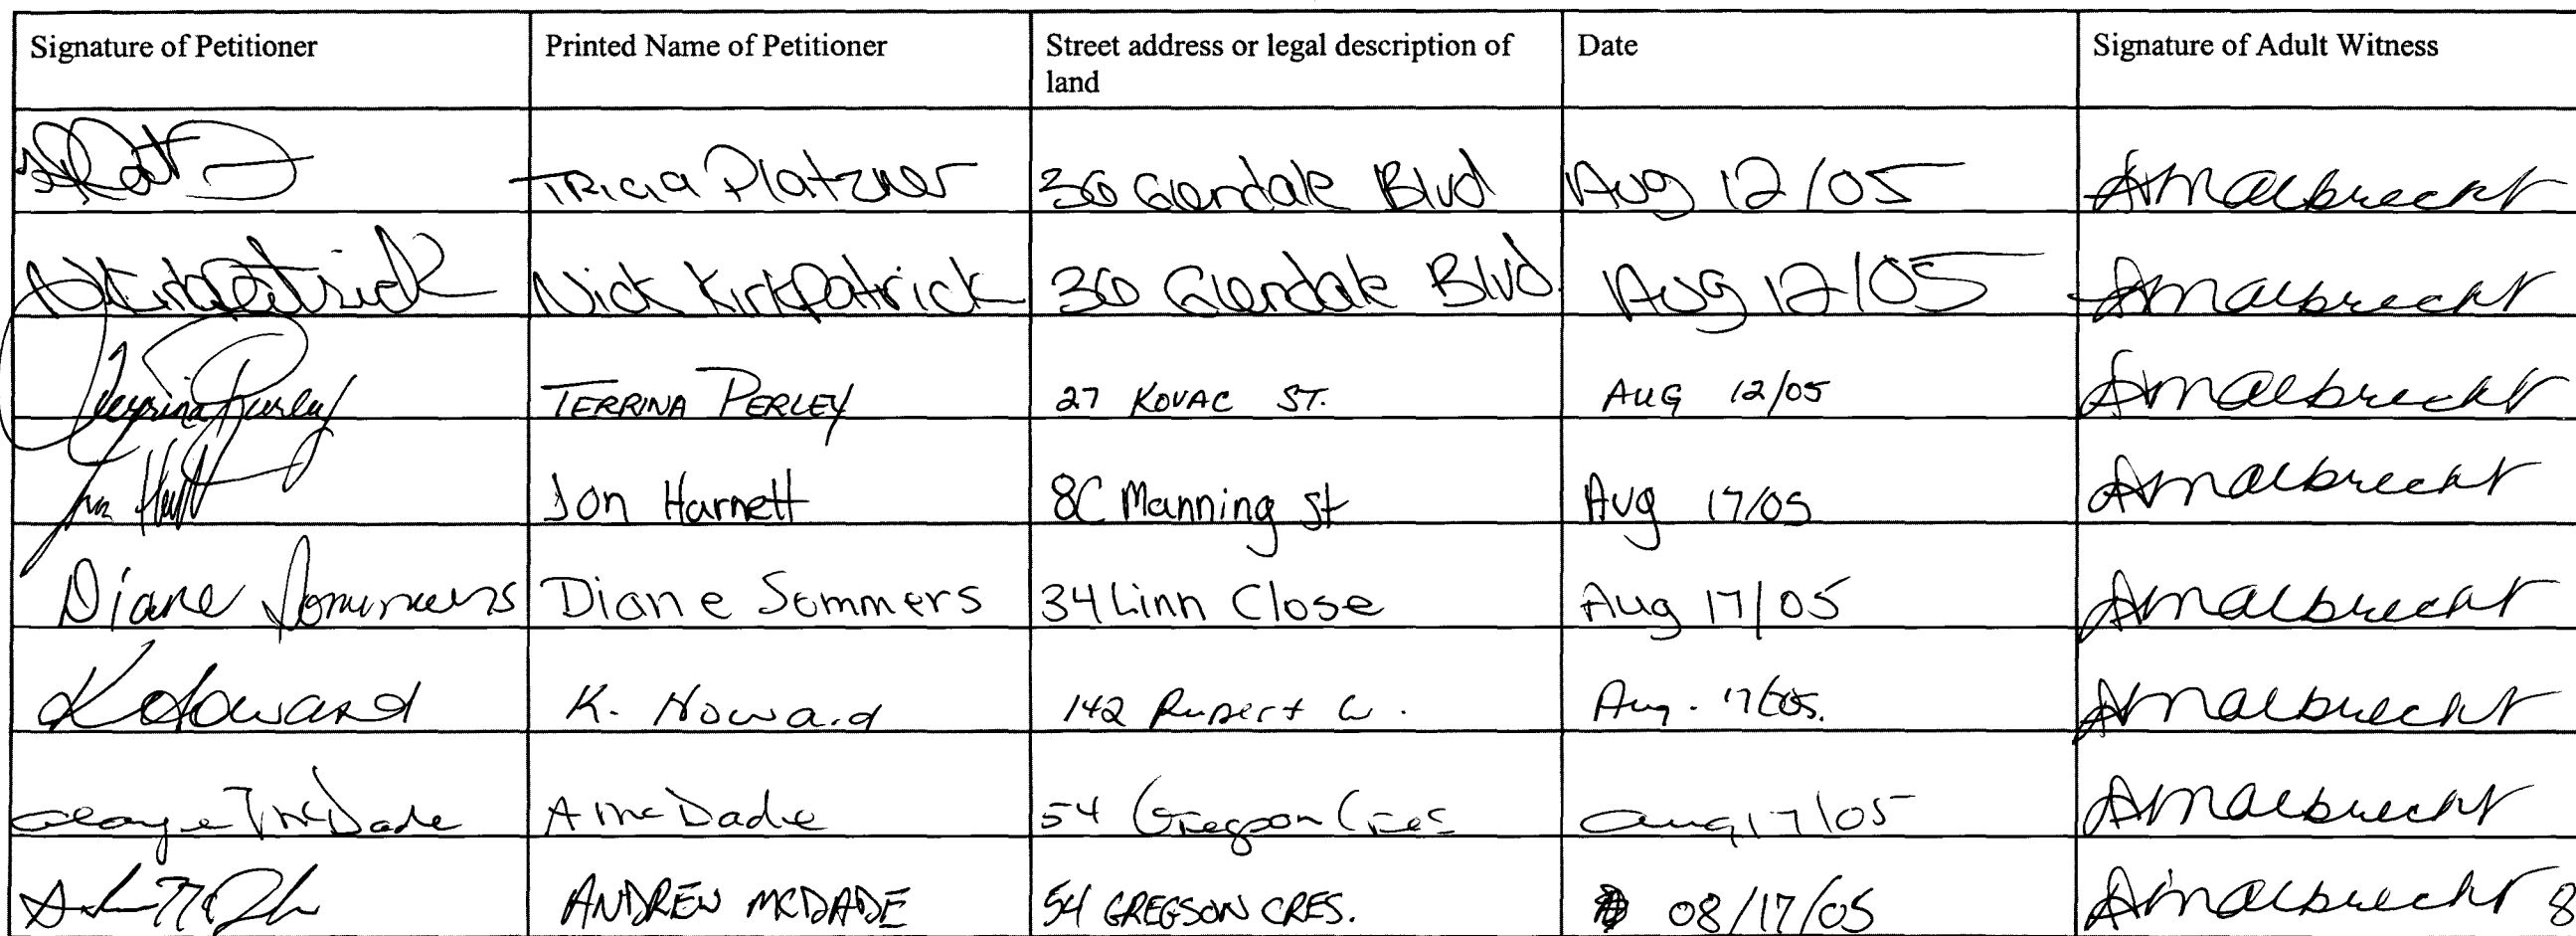 Signature of Petitioner Printed Name of Petitioner Street address or legal description of land Date Signature of Adult Witness
Tricia Platzner 36 Glendale Blvd Aug 12/05 AMalbrecht
NKirkpatrick Nick Kirkpatrick 36 Glendale Blvd. Aug 12/05 AMalbrecht
Terrina Perley TERRINA PERLEY 27 KOVAC ST. AUG 12/05 AMalbrecht
Jon Harnett 8C Manning St Aug 17/05 AMalbrecht
Diane Sommers Diane Sommers 34 Linn Close Aug 17/05 AMalbrecht
K Howard K. Howard 142 Rupert Aug. 17/05. AMalbrecht
McDade A McDade 54 Gregson Cres Aug 17/05 AMalbrecht
ANDREW MCDADE 54 GREGSON CRES. 08/17/05 AMalbrecht 8